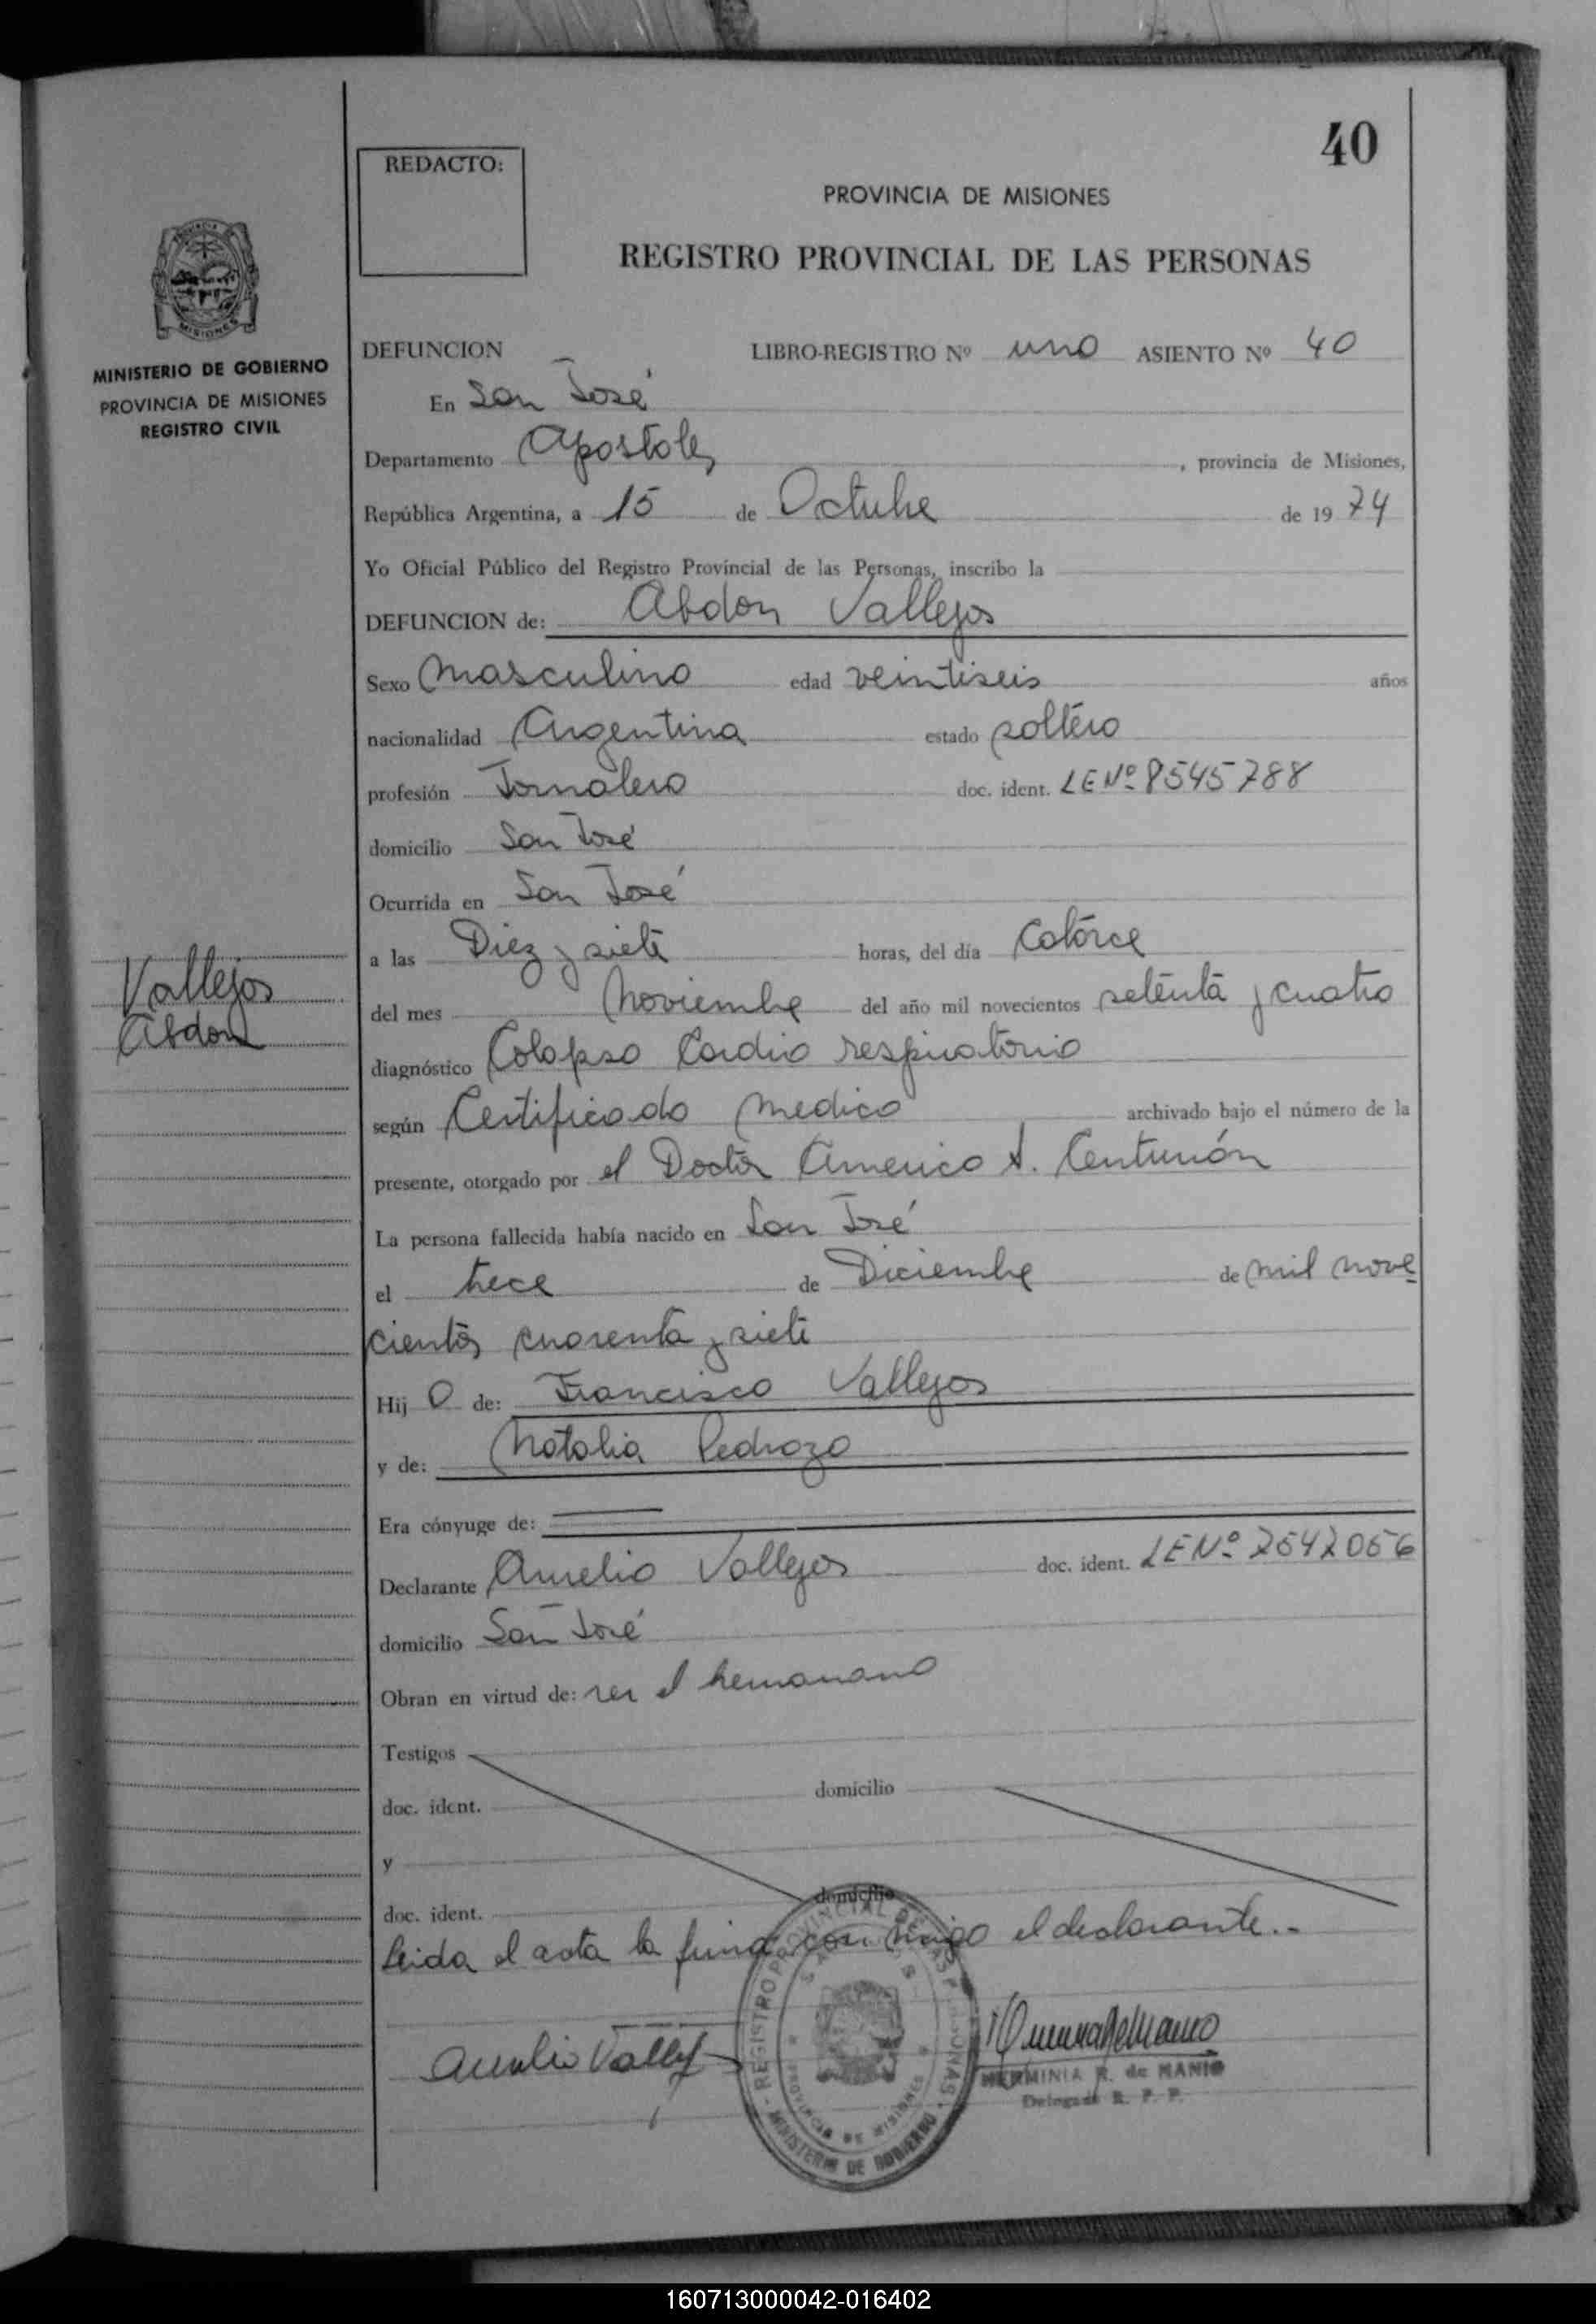 40
REDACTO:
PROVINCIA DE MISIONES
REGISTRO PROVINCIAL DE LAS PERSONAS
MISIONES
MINISTERIO DE GOBIERNO
PROVINCIA DE MISIONES
REGISTRO CIVIL
DEFUNCION LIBRO-REGISTRO Nº uno ASIENTO Nº 40
En San José
Departamento Apostoles, provincia de Misiones,
República Argentina, a 15 de Octubre de 1974
Yo Oficial Público del Registro Provincial de las Personas, inscribo la
DEFUNCION de: Abdon Vallejos
Sexo Masculino edad veintiseis años
nacionalidad Argentina estado soltero
profesión Jornalero doc. ident. LE Nº 8545788
domicilio San José
Ocurrida en San José
a las Diez y siete horas, del día Catorce
Vallejos
Abdon
del mes Noviembre del año mil novecientos setenta y cuatro
diagnóstico Colapso Cardio respiratorio
según Certificado Medico archivado bajo el número de la
presente, otorgado por el Doctor Americo A. Centurión
La persona fallecida había nacido en San José
el trece de Diciembre de mil nove
cientos cuarenta y siete
Hijo de: Francisco Vallejos
y de: Natalia Pedrozo
Era cónyuge de:
Declarante Aurelio Vallejos doc. ident. LE Nº 7542056
domicilio San José
Obran en virtud de: ser el hermanano
Testigos
doc. ident. domicilio
y
doc. ident. domicilio
Leida el acta la firma con migo el declarante.-
Aurelio Vallej
HERMINIA R. de MANIO
Delegada R. P. P.
REGISTRO PROVINCIAL DE LAS PERSONAS
MINISTERIO DE GOBIERNO
PROVINCIA DE MISIONES
160713000042-016402